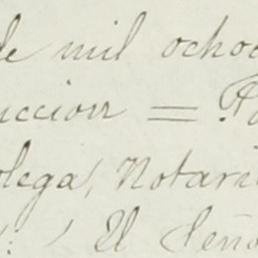 de mil ochoc
uccion = Fa
olega, Notari
El Seño